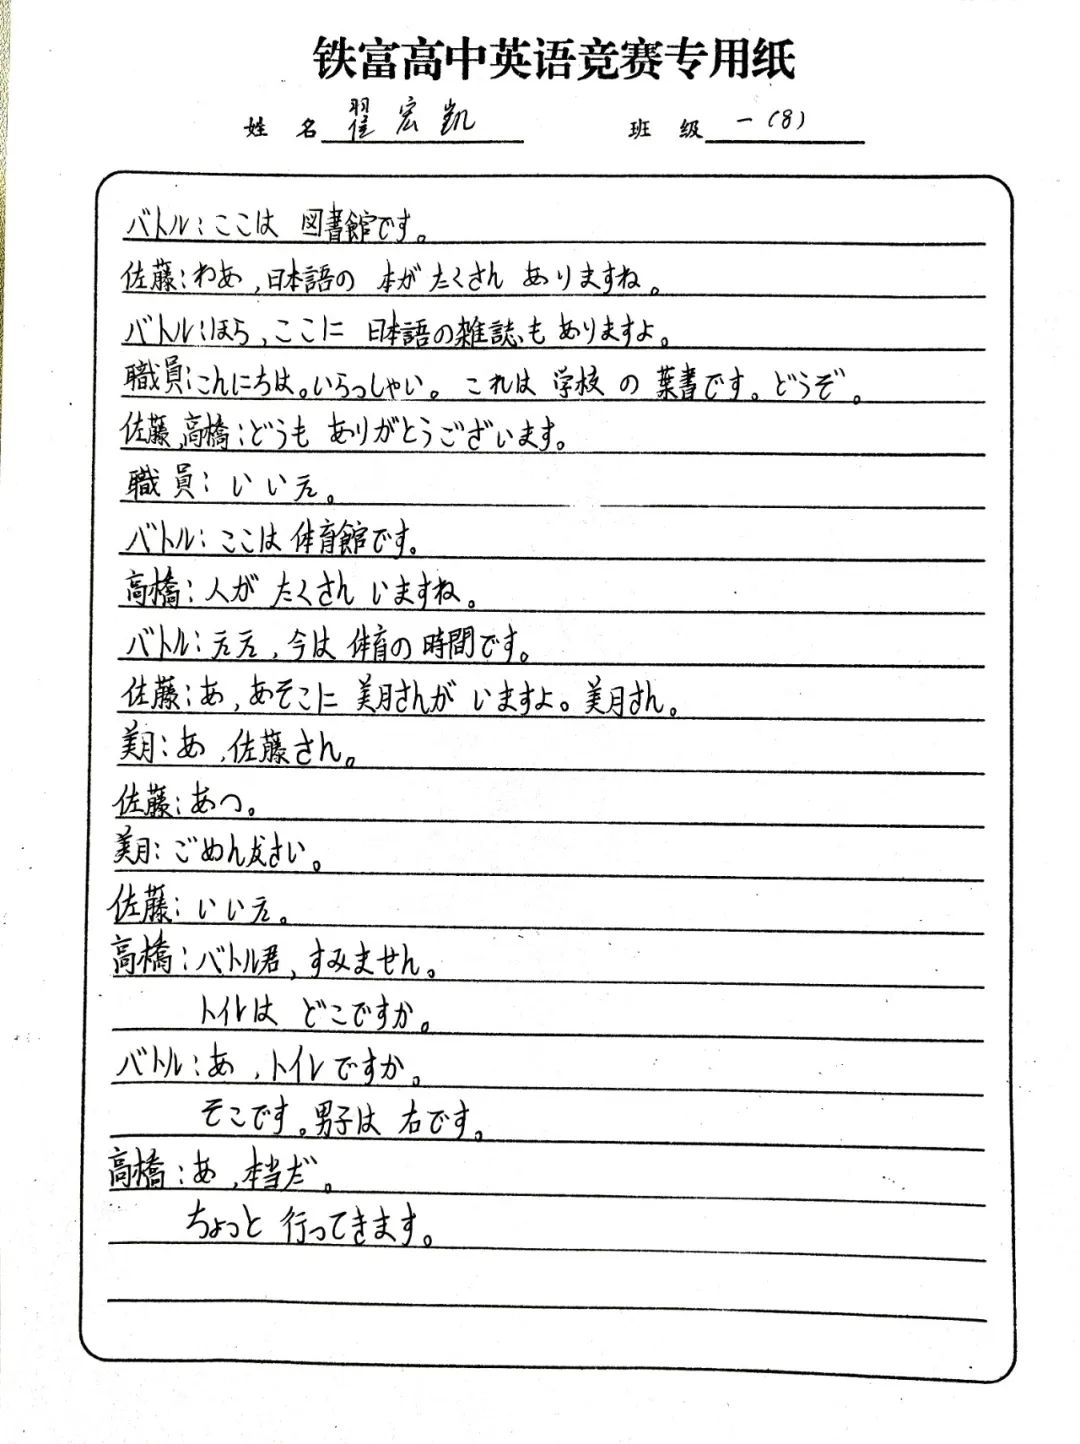 铁富高中英语竞赛专用纸
姓 名 翟宏凯 班 级 一(8)
バトル:ここは 図書館です。
佐藤:わあ,日本語の 本が たくさん ありますね。
バトル:ほら,ここに 日本語の雑誌も ありますよ。
職員:こんにちは。いらっしゃい。これは 学校 の 葉書です。どうぞ。
佐藤,高橋:どうも ありがとうございます。
職員:いいえ。
バトル:ここは 体育館です。
高橋:人が たくさん いますね。
バトル:ええ,今は 体育の 時間です。
佐藤:あ,あそこに 美月さんが いますよ。美月さん。
美月:あ,佐藤さん。
佐藤:あつ。
美月:ごめんなさい。
佐藤:いいえ。
高橋:バトル君,すみません。
トイレは どこですか。
バトル:あ,トイレですか。
そこです。男子は 右です。
高橋:あ,本当だ。
ちょっと 行ってきます。